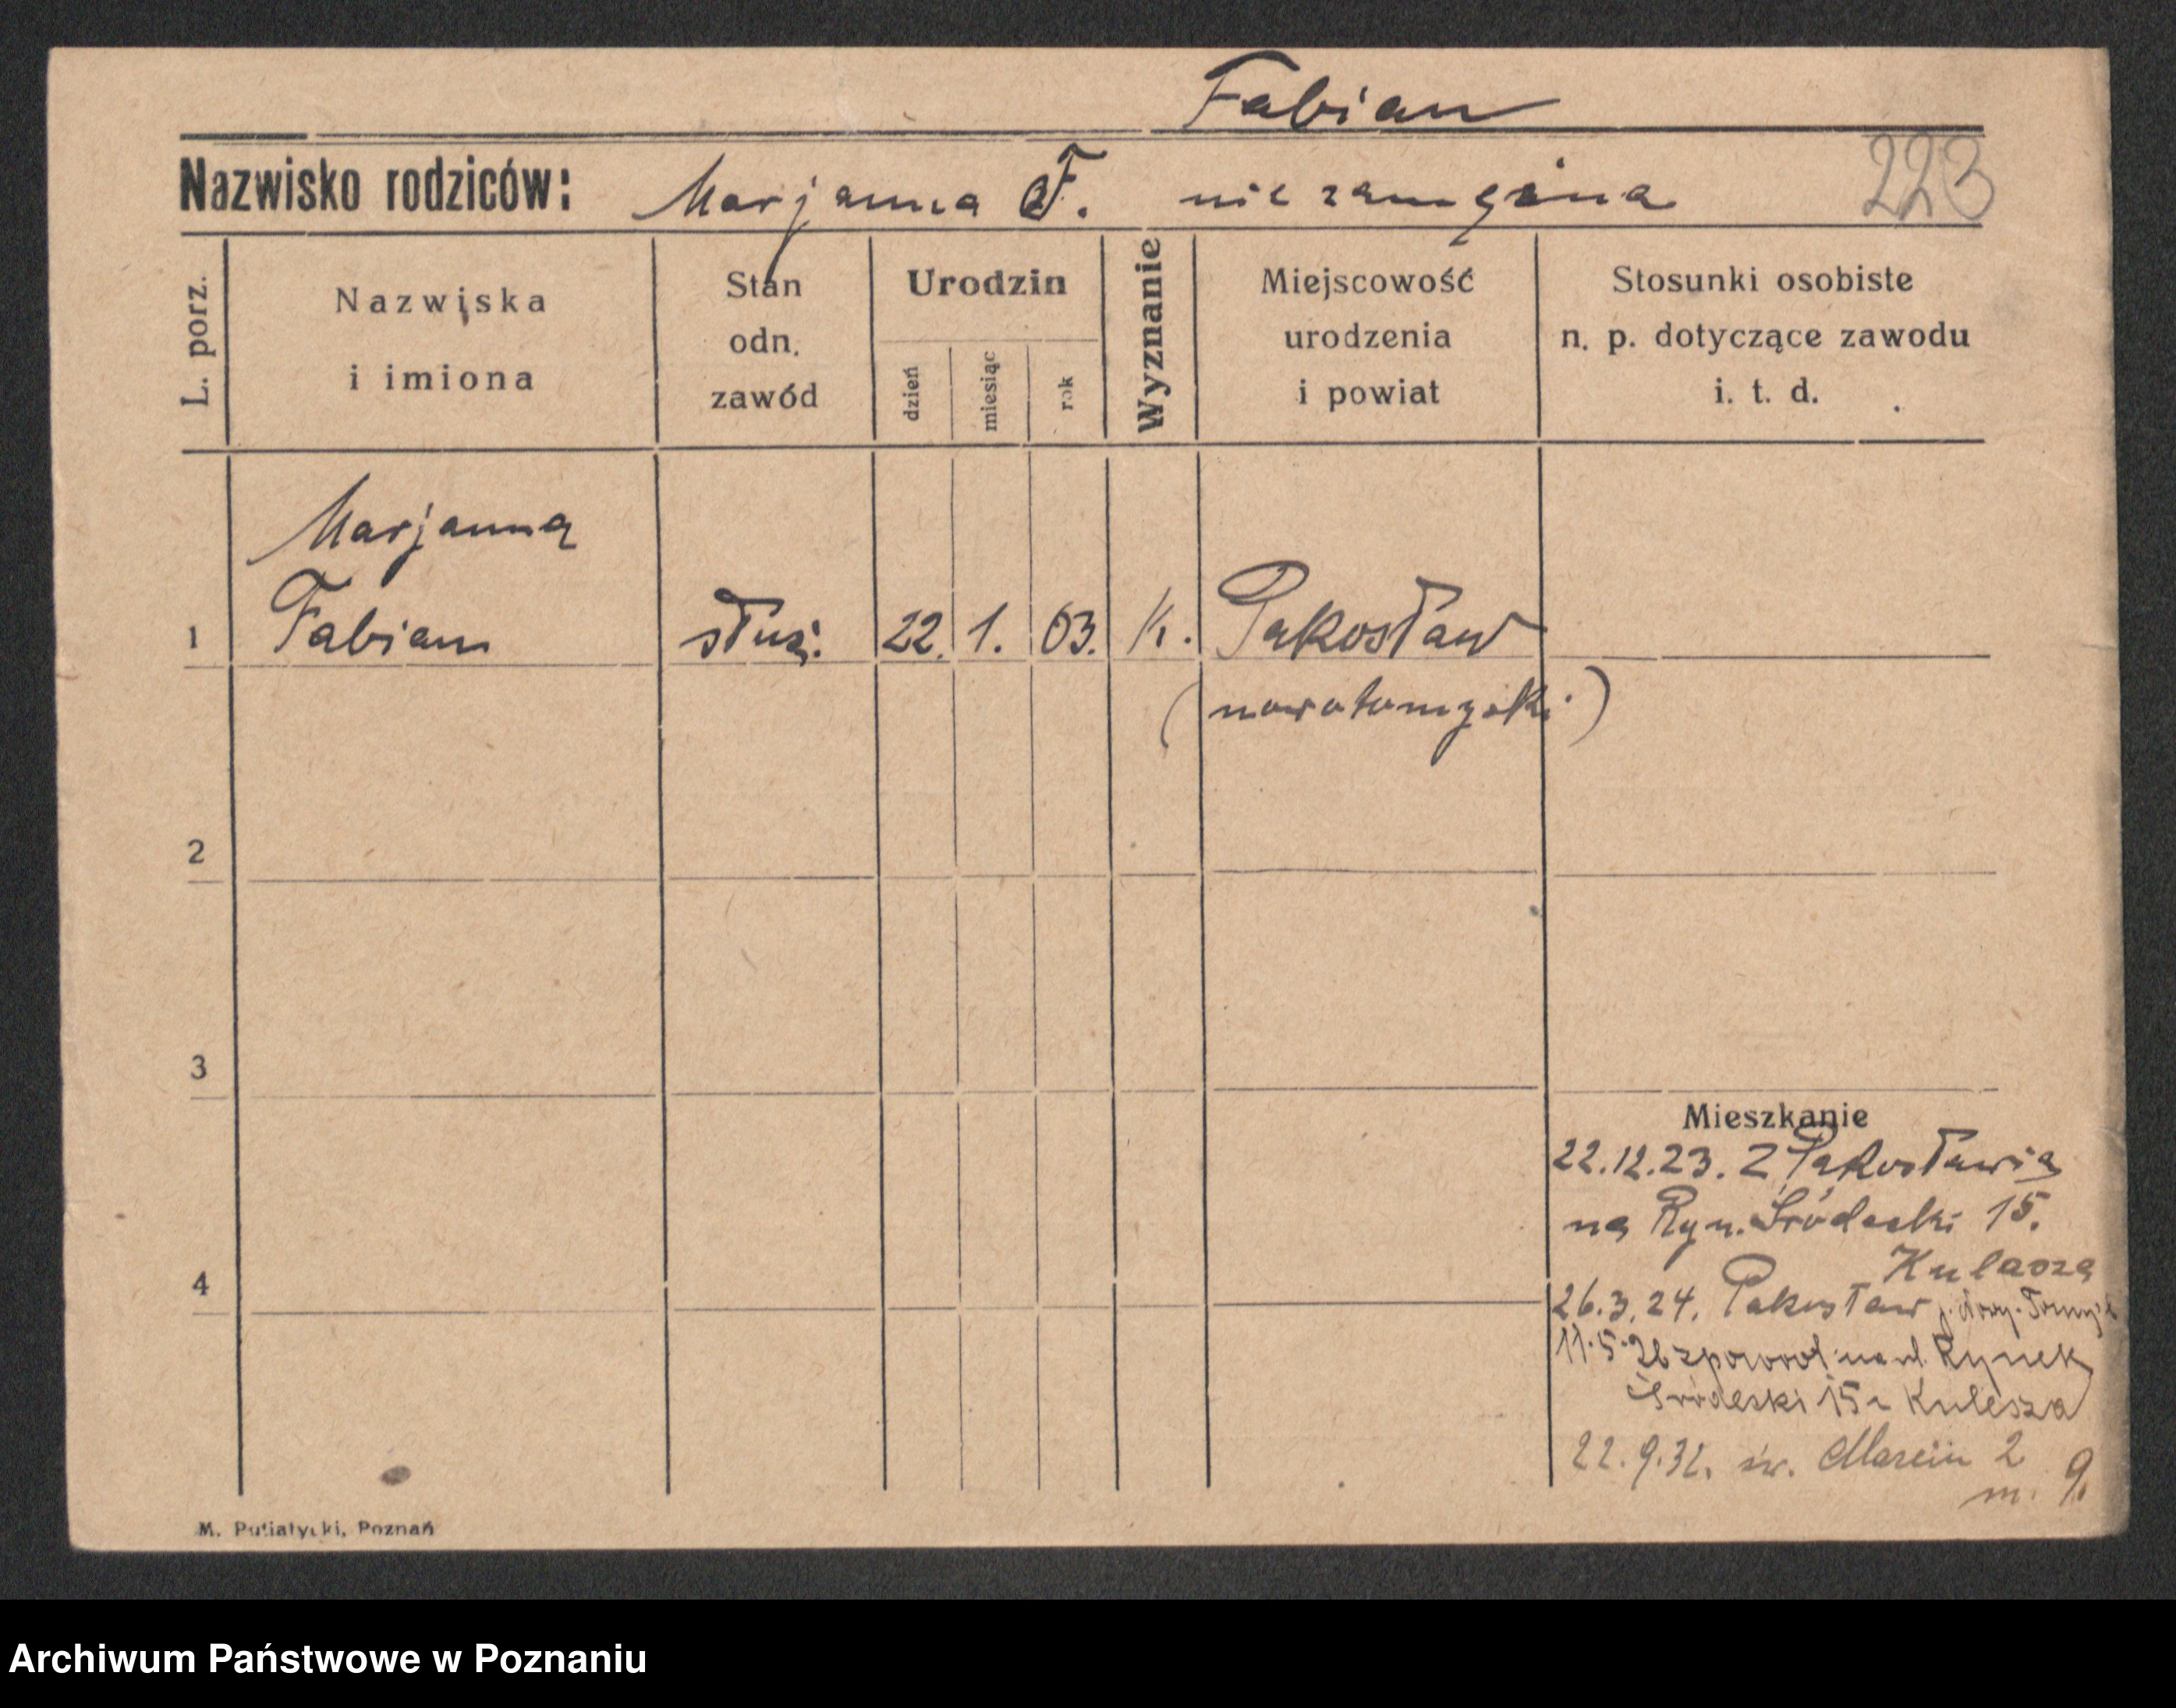 Fabian
Nazwisko rodziców: Marjanna F. niezamężna 223
L. porz.
Nazwiska
i imiona
Stan
odn.
zawód
Urodzin
dzień
miesiąc
rok
Wyznanie
Miejscowość
urodzenia
i powiat
Stosunki osobiste
n. p. dotyczące zawodu
i. t. d.
Marjanna
1 Fabian służ. 22. 1. 03. K. Pakosław
(nowotomyski)
2
3
4
Mieszkanie
22.12.23. Z Pakosławia
na Ryn. Śródecki 15.
Kulasza
26.3.24. Pakosław p. Nowy-Tomyśl
11.5.26 zpowrot. na ul. Rynek
Śródeski 15 Kulesza
22.9.32. św. Marcin 2
m. 9.
M. Putiatycki, Poznań
Archiwum Państwowe w Poznaniu